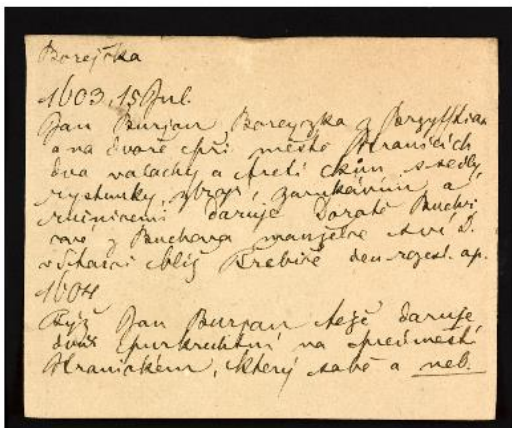 Borejčka
1603, 15 Jul.
Jan Burjan Boreyczka z
a na dvoře při městě Hranicích
dva valachy a třetí kůň, s sedly,
rystunky, zbrojí, a
ručnicemi daruje Doratě
z Buchova manželce své D.
blíž Třebíče ap.
1604
Týž Jan Burjan též daruje
dvůr purkrechtní na předměstí
Hranickém, který sobě a neb.